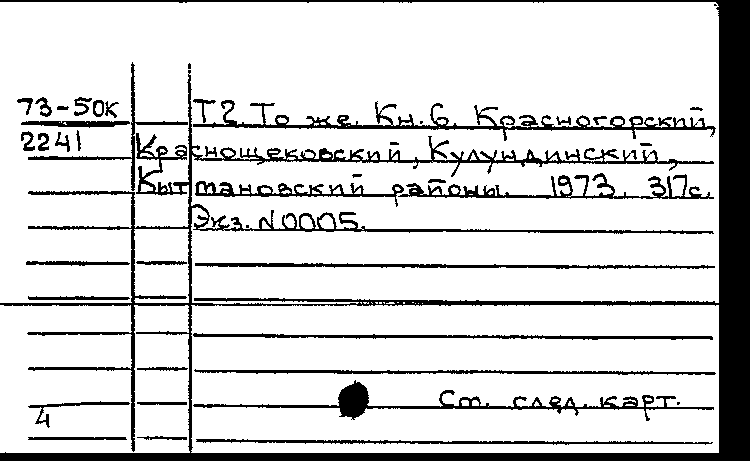 73-50к Т.2. То же. Кн.6. Красногорский,
2241 Краснощековский, Кулундинский,
Кытмановский районы. 1973. 317с.
Экз. N0005.
См. след. карт.
4